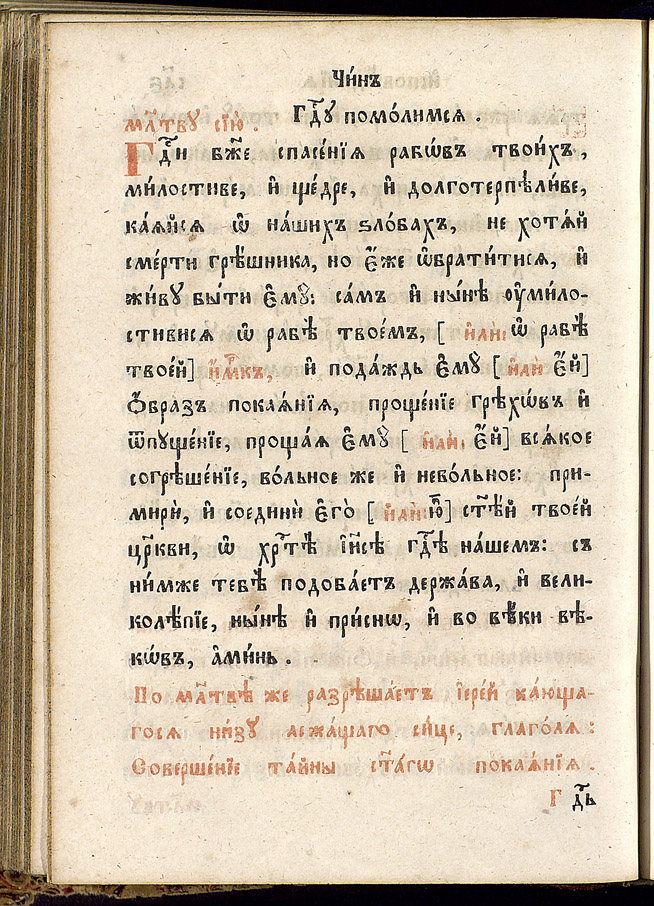 Чи́нъ
мл҃тву сїю̀. Гдⷭ҇у помо́лимсѧ.
Гдⷭ҇и бж҃е спасе́нїѧ рабѡ́въ твои́хъ,
ми́лостиве, и҆ ще́дре, и҆ долготерпѣли́ве,
ка́ѧйсѧ ѡ҆ на́шихъ ѕло́бахъ, не хотѧ́й
сме́рти грѣ́шника, но є҆́же ѡ҆брати́тисѧ, и҆
жи́вꙋ бы́ти є҆мꙋ̀: са́мъ и҆ ны́нѣ ᲂу҆мило-
стивисѧ ѡ҆ рабѣ̀ твое́мъ, [и҆лѝ: ѡ҆ рабѣ̀
твое́й] и҆́мⷬ҇къ, и҆ пода́ждь є҆мꙋ̀ [и҆лѝ є҆́й]
Ѻ҆́бразъ покаѧ́нїѧ, проще́нїе грѣхѡ́въ и҆
ѿпꙋще́нїе, проща́ѧ є҆мꙋ̀ [и҆лѝ, є҆́й] всѧ́кое
согрѣше́нїе, во́льное же и҆ нево́льное: при-
мирѝ, и҆ соединѝ є҆го̀ [и҆лѝ ю҆̀] ст҃ѣ́й твое́й
цр҃кви, ѡ҆ хрⷭ҇тѣ̀ і҆и҃сѣ гдⷭ҇ѣ на́шемъ: съ
ни́мже тебѣ̀ подоба́етъ держа́ва, и҆ вели-
колѣ́пїе, ны́нѣ и҆ при́снѡ, и҆ во вѣ́ки вѣ-
кѡ́въ, а҆ми́нь.
По мл҃твѣ же разрѣша́етъ і҆ере́й ка́юща-
госѧ ни́зꙋ лежа́щаго си́це, глаго́лѧ:
Соверше́нїе та́йны ст҃а́гѡ покаѧ́нїѧ.
Гдⷭ҇ь